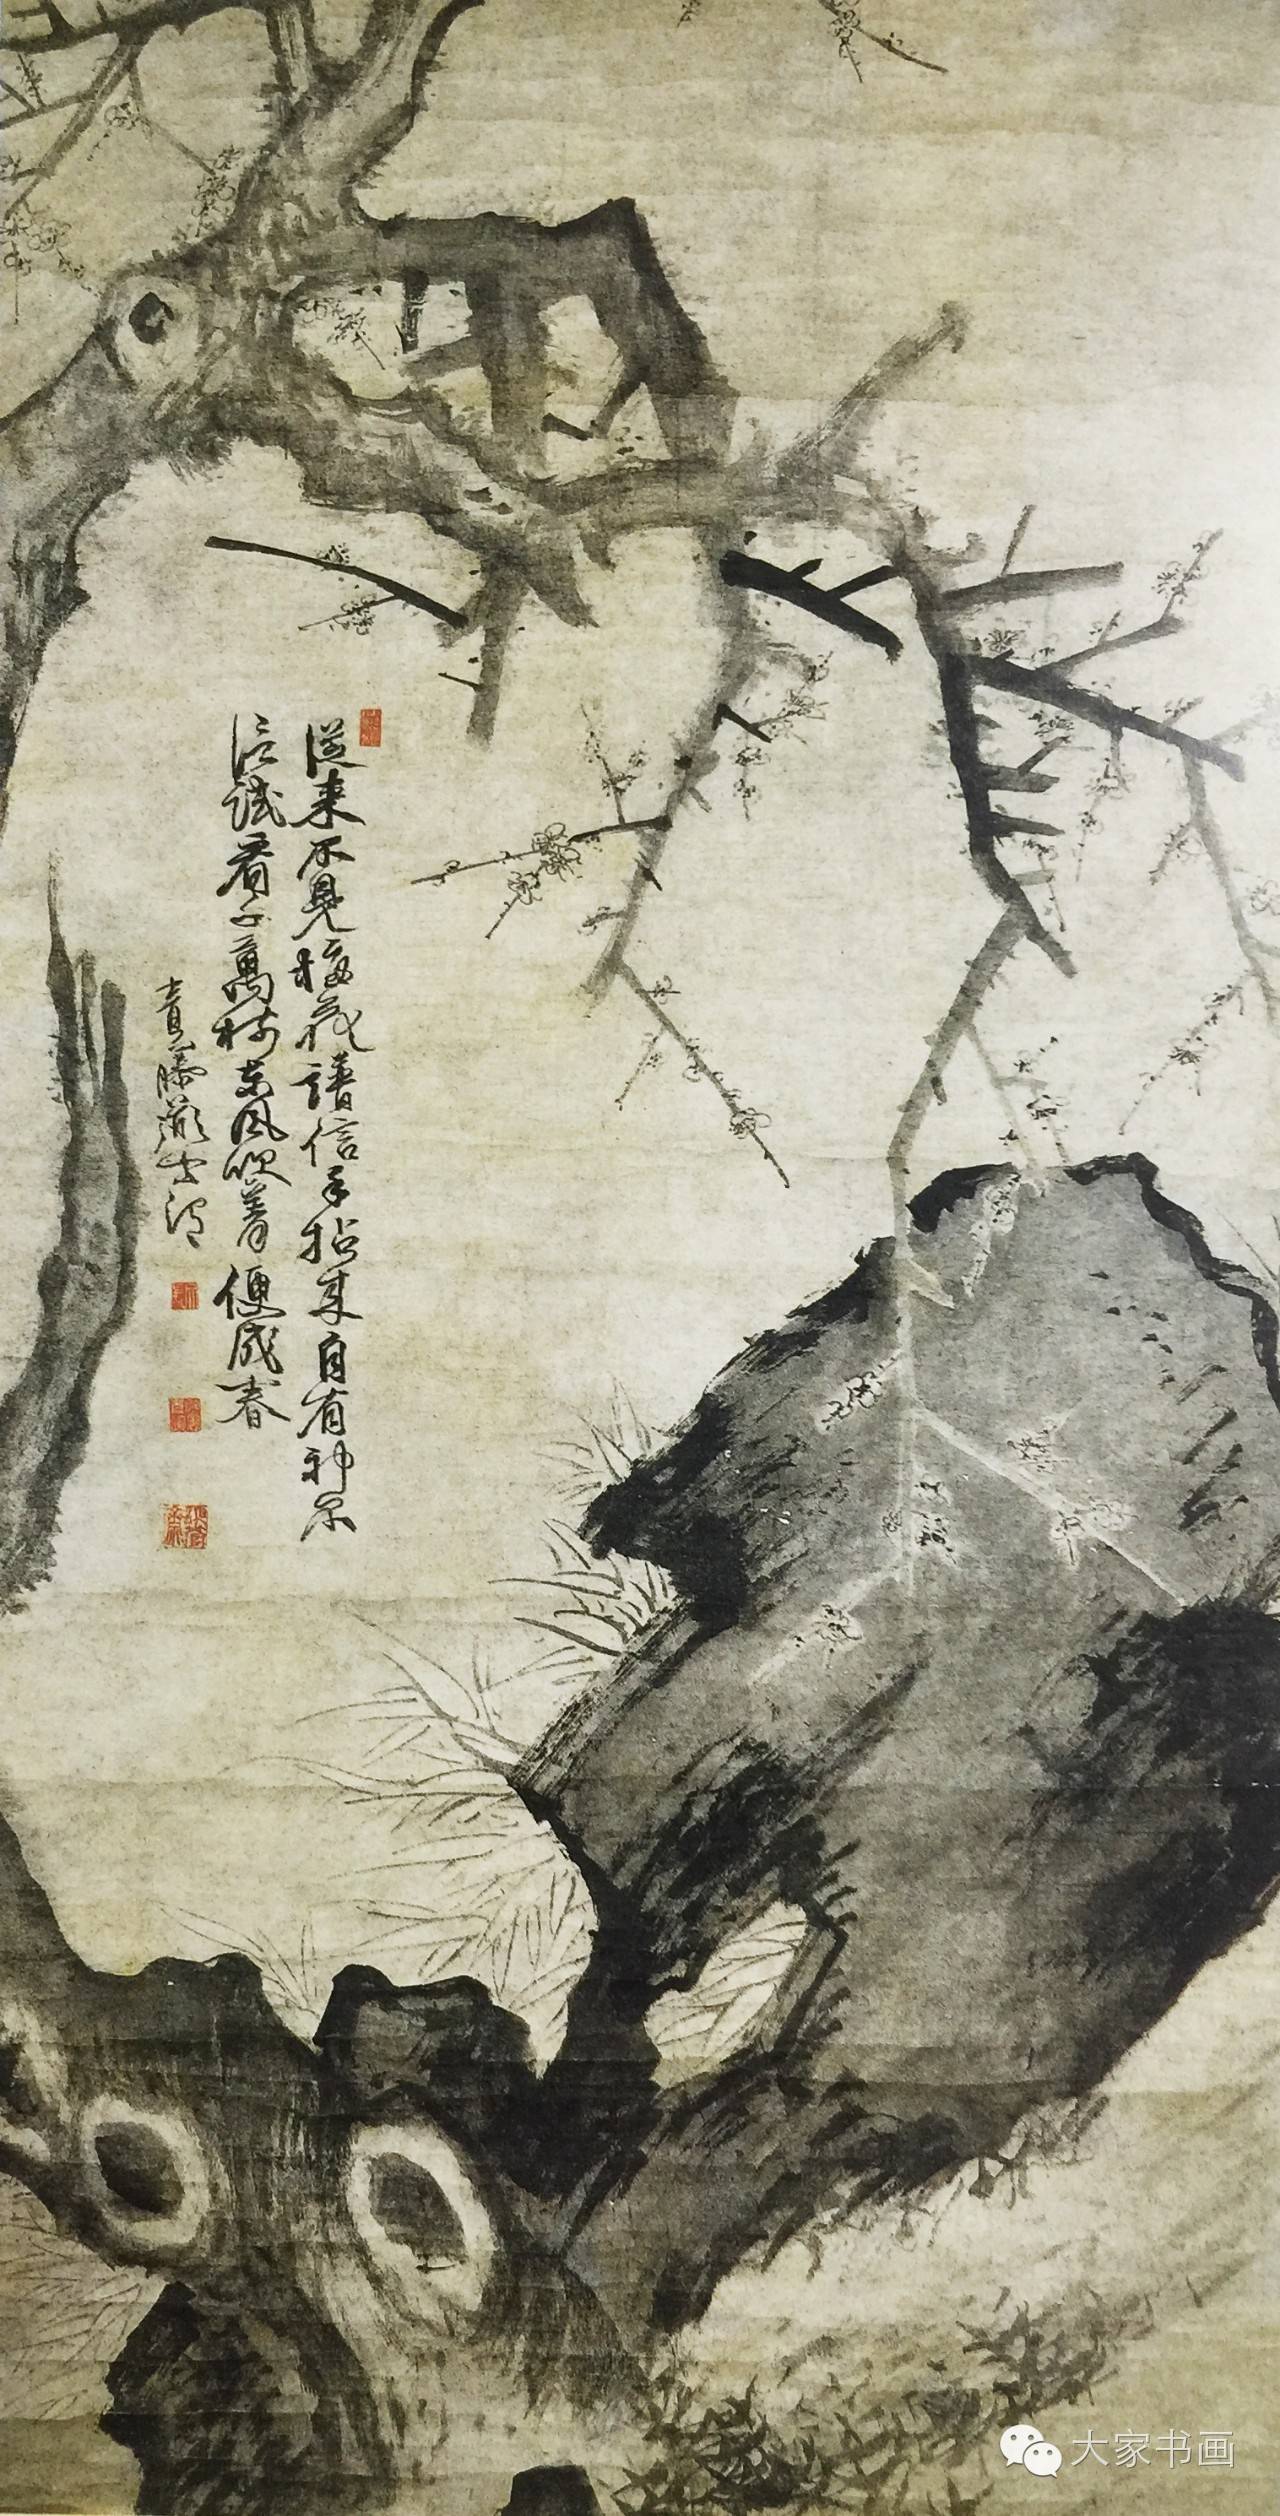 從來不見梅花譜信手拈來自有神不
信試看千萬樹東風吹著便成春
青藤道士渭
大家书画